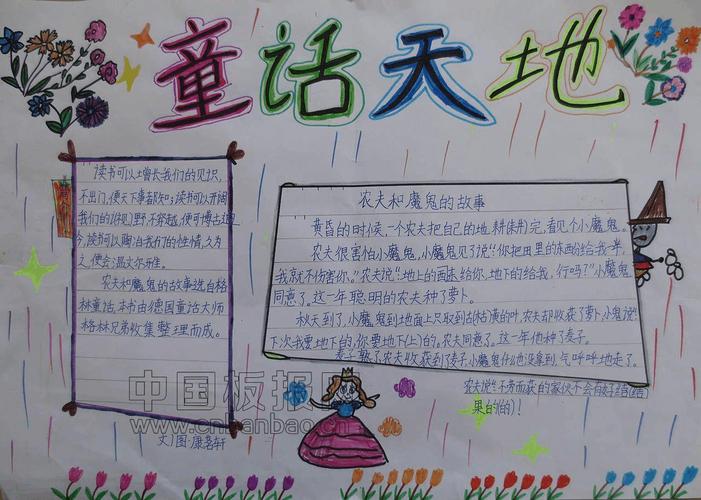 童话天地
读书可以增长我们的见识,
不出门,便天下事都知;读书可以开阔
我们的视野,不穷越,便可博古通
今,读书可以陶冶我们的性情,久为
之,便会温文尔雅。
农夫和魔鬼的故事选自格
林童话,本书由德国童话大师
格林兄弟收集整理而成。
文/图:康茗轩
农夫和魔鬼的故事
黄昏的时候,一个农夫把自己的地耕(耕)完,看见个小魔鬼。
农夫很害怕小魔鬼,小魔鬼见了说:“你把田里的东西分给我一半,
我就不伤害你。”农夫说:“地上的
给你,地下的给我,行吗?”小魔鬼
同意了。这一年聪明的农夫种了萝卜。
秋天到了,小魔鬼到地面上只取到(枯)黄的叶,农夫却收获了萝卜,小鬼说:“
下次我要地下的,你要地下(上)的,农夫同意了。这一年他种了麦子。
麦子熟了农夫收获到麦子,小魔鬼什么也没拿到,气呼呼地走了。
农夫说:“不劳而获的家伙不会有好结(结)
果的(的)!
中国板报网
www.chinanbao.cn